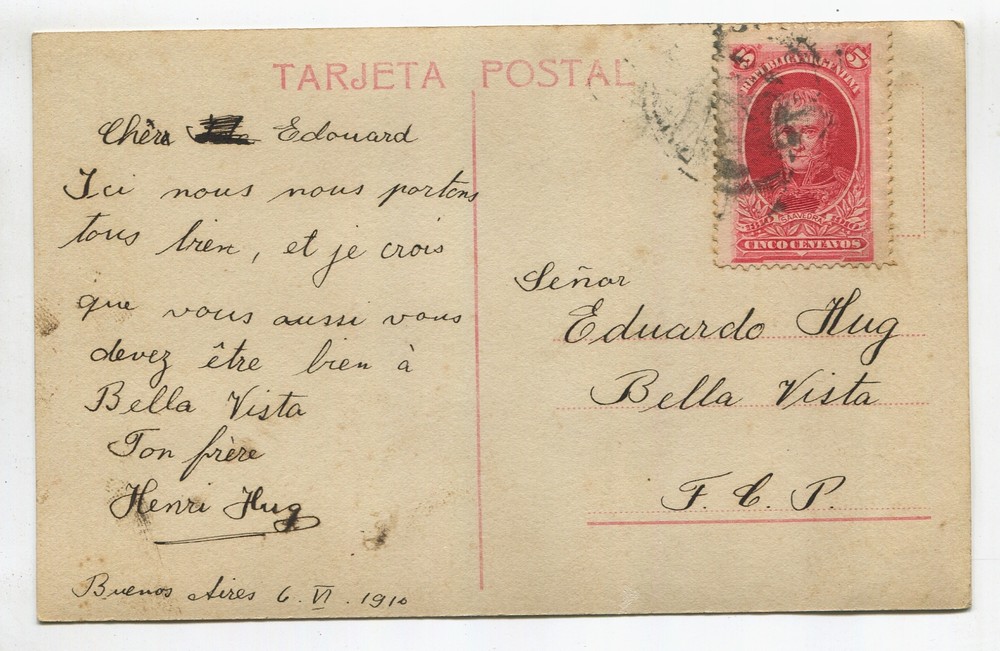 TARJETA POSTAL
Chèr Edouard
Ici nous nous portons
tous bien, et je crois
que vous aussi vous
devez être bien à
Bella Vista
Ton frère
Henri Hug
Buenos Aires 6. VI. 1910
5 5
REPUBLICA ARGENTINA
SAAVEDRA
1810 1910
CINCO CENTAVOS
Señor
Eduardo Hug
Bella Vista
F. C. P.